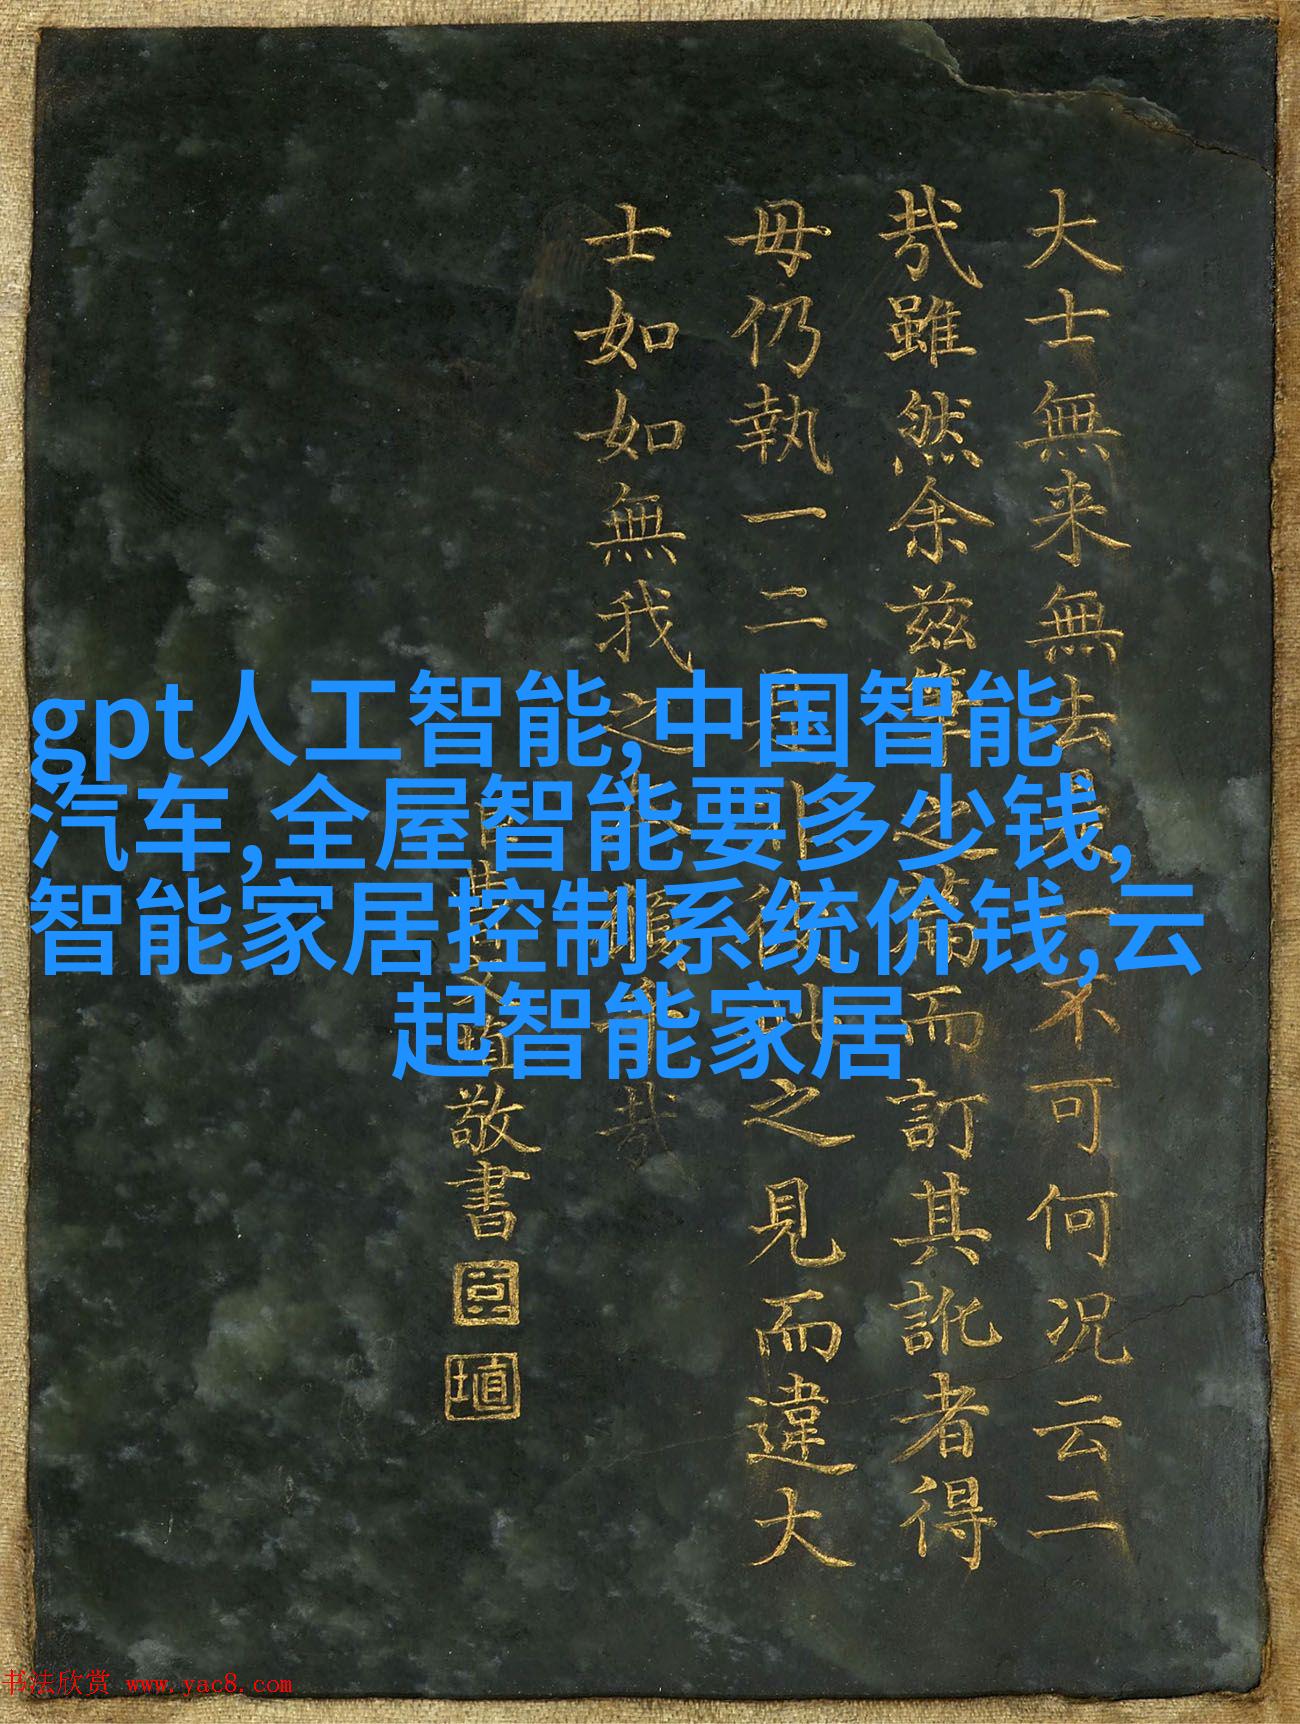 大士無来無去
不可何況云二
㢤雖然余兹
之篇而訂其訛者得
毋仍執一二
之見而違大
士如如無我之
敬書
gpt人工智能,中国智能
汽车,全屋智能要多少钱,
智能家居控制系统价钱,云
起智能家居
书法欣赏 www.yac8.com